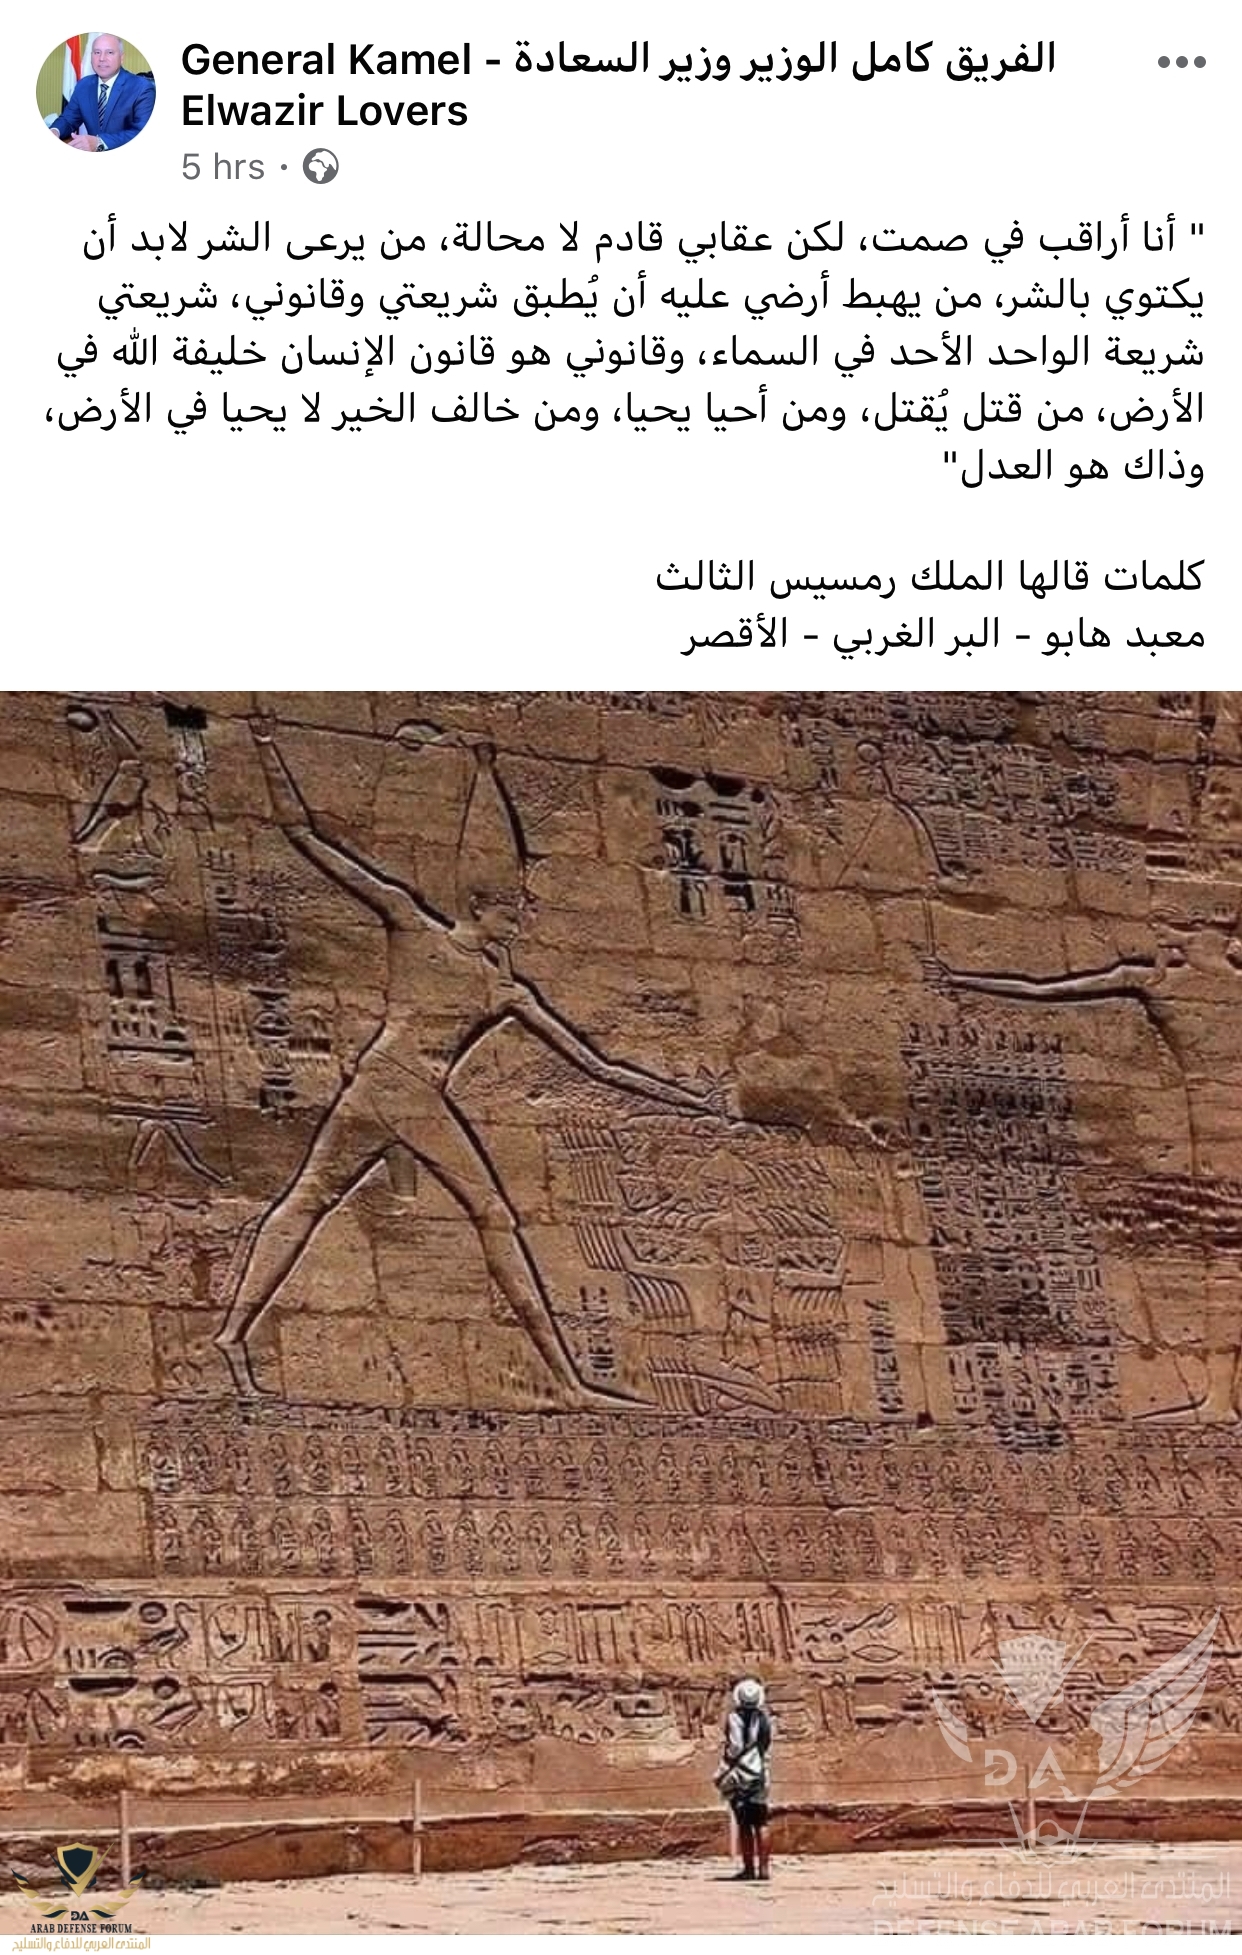 General Kamel - الفريق كامل الوزير وزير السعادة
Elwazir Lovers
5 hrs ·
" أنا أراقب في صمت، لكن عقابي قادم لا محالة، من يرعى الشر لابد أن
يكتوي بالشر، من يهبط أرضي عليه أن يُطبق شريعتي وقانوني، شريعتي
شريعة الواحد الأحد في السماء، وقانوني هو قانون الإنسان خليفة الله في
الأرض، من قتل يُقتل، ومن أحيا يحيا، ومن خالف الخير لا يحيا في الأرض،
وذاك هو العدل"
كلمات قالها الملك رمسيس الثالث
معبد هابو - البر الغربي - الأقصر
DA
ARAB DEFENSE FORUM
المنتدى العربي للدفاع والتسليح
DA
المنتدى العربي للدفاع والتسليح
DEFENSE ARAB FORUM